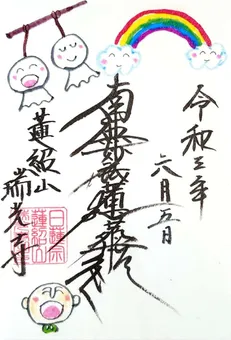 令和三年
六月五日
南無妙法蓮華経
蓮紹山
瑞光寺
日蓮宗
蓮紹山